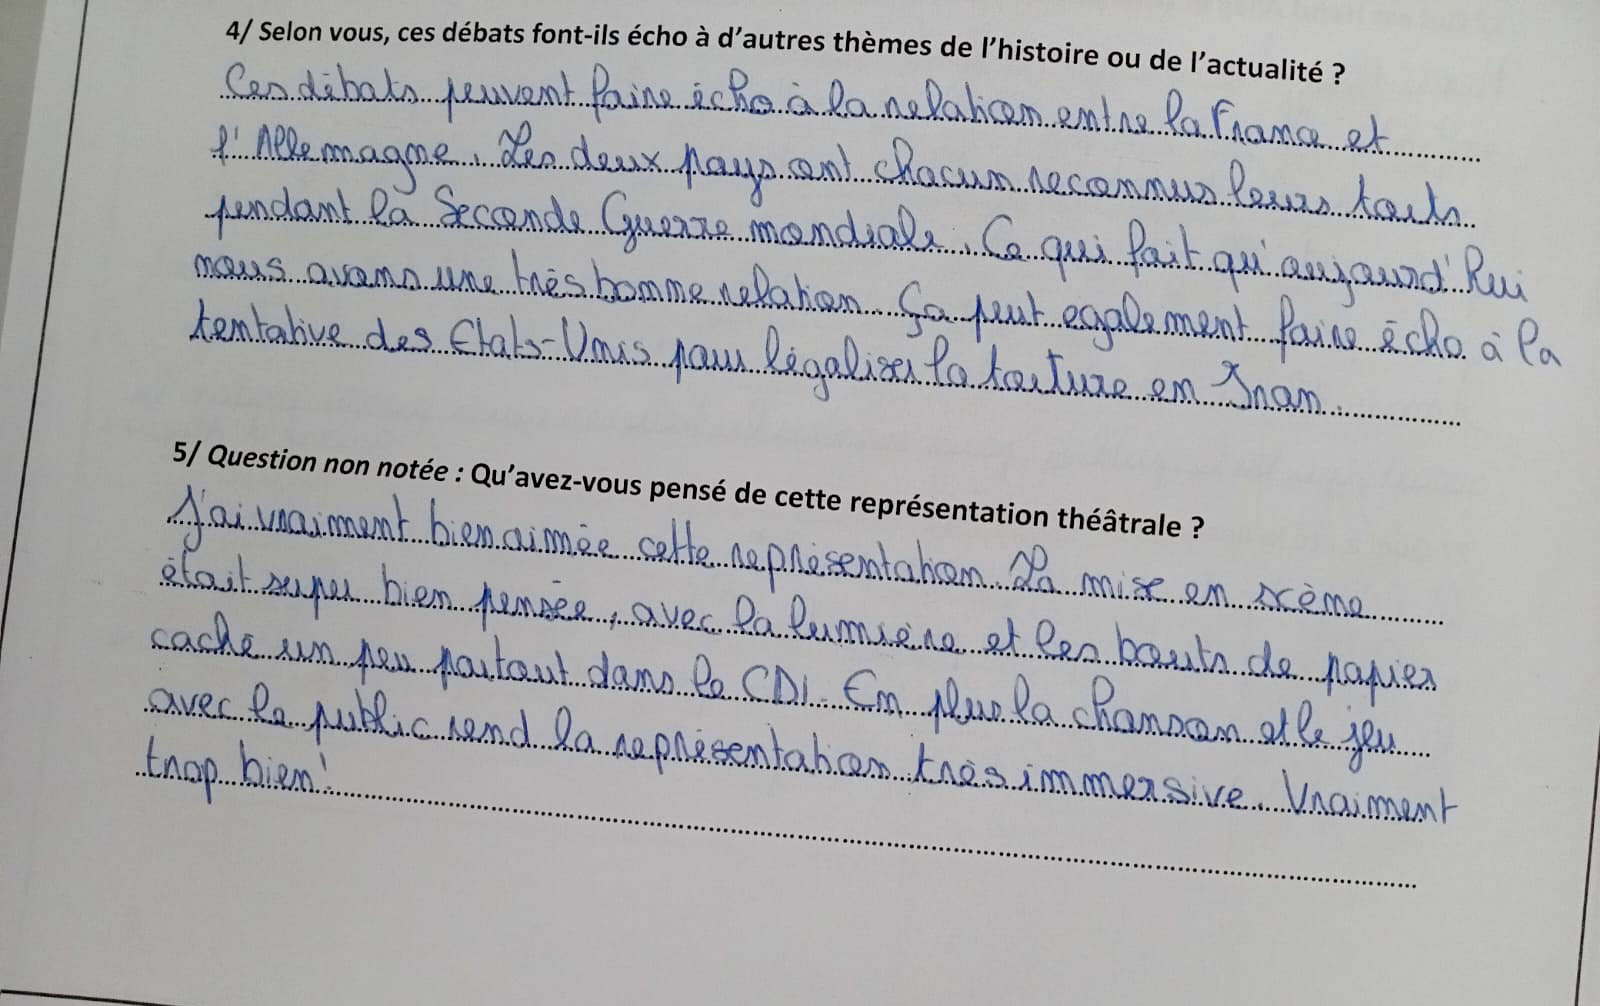 4/ Selon vous, ces débats font-ils écho à d'autres thèmes de l'histoire ou de l'actualité ?
Ces débats peuvent faire écho à la relation entre la France et
l'Allemagne. Les deux pays ont chacun reconnus leurs torts
pendant la Seconde Guerre mondiale. Ce qui fait qu'aujourd'hui
nous avons une très bonne relation. Ça peut egalement faire écho à la
tentative des Etats-Unis pour légaliser la torture en Iran.
5/ Question non notée : Qu'avez-vous pensé de cette représentation théâtrale ?
J'ai vraiment bien aimée cette représentation. La mise en scène
était super bien pensée, avec la lumière et les bouts de papier
caché un peu partout dans le CDI. En plus la chanson et le jeu
avec le public rend la représentation très immersive. Vraiment
trop bien!